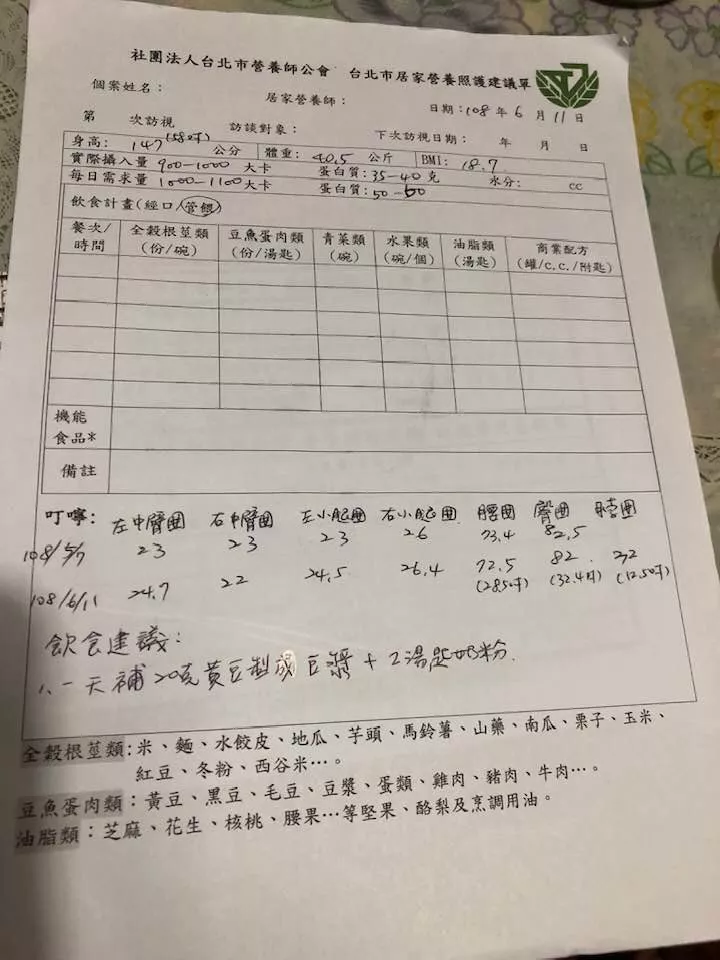 社團法人台北市營養師公會 台北市居家營養照護建議單
個案姓名：
居家營養師：
日期：108 年 6 月 11 日
第 次訪視 訪談對象： 下次訪視日期： 年 月 日
身高：147(58吋) 公分 體重：40.5 公斤 BMI：18.7
實際攝入量 900-1000 大卡 蛋白質：35-40 克 水分： cc
每日需求量 1000-1100 大卡 蛋白質：50-60
飲食計畫(經口/管餵)
餐次/時間 全穀根莖類(份/碗) 豆魚蛋肉類(份/湯匙) 青菜類(碗) 水果類(碗/個) 油脂類(湯匙) 商業配方(罐/c.c./附匙)
機能食品*
備註
叮嚀： 左中臂圍 右中臂圍 左小腿圍 右小腿圍 腰圍 臀圍 圍
108/5/7 23 23 23 26 73.4 82.5
108/6/11 24.7 22 24.5 26.4 72.5 82 32
(28.5吋) (32.4吋) (12.5吋)
飲食建議：
1. 一天補20克黃豆製成豆漿+2湯匙奶粉.
全穀根莖類:米、麵、水餃皮、地瓜、芋頭、馬鈴薯、山藥、南瓜、栗子、玉米、
紅豆、冬粉、西谷米…。
豆魚蛋肉類：黃豆、黑豆、毛豆、豆漿、蛋類、雞肉、豬肉、牛肉…。
油脂類：芝麻、花生、核桃、腰果…等堅果、酪梨及烹調用油。